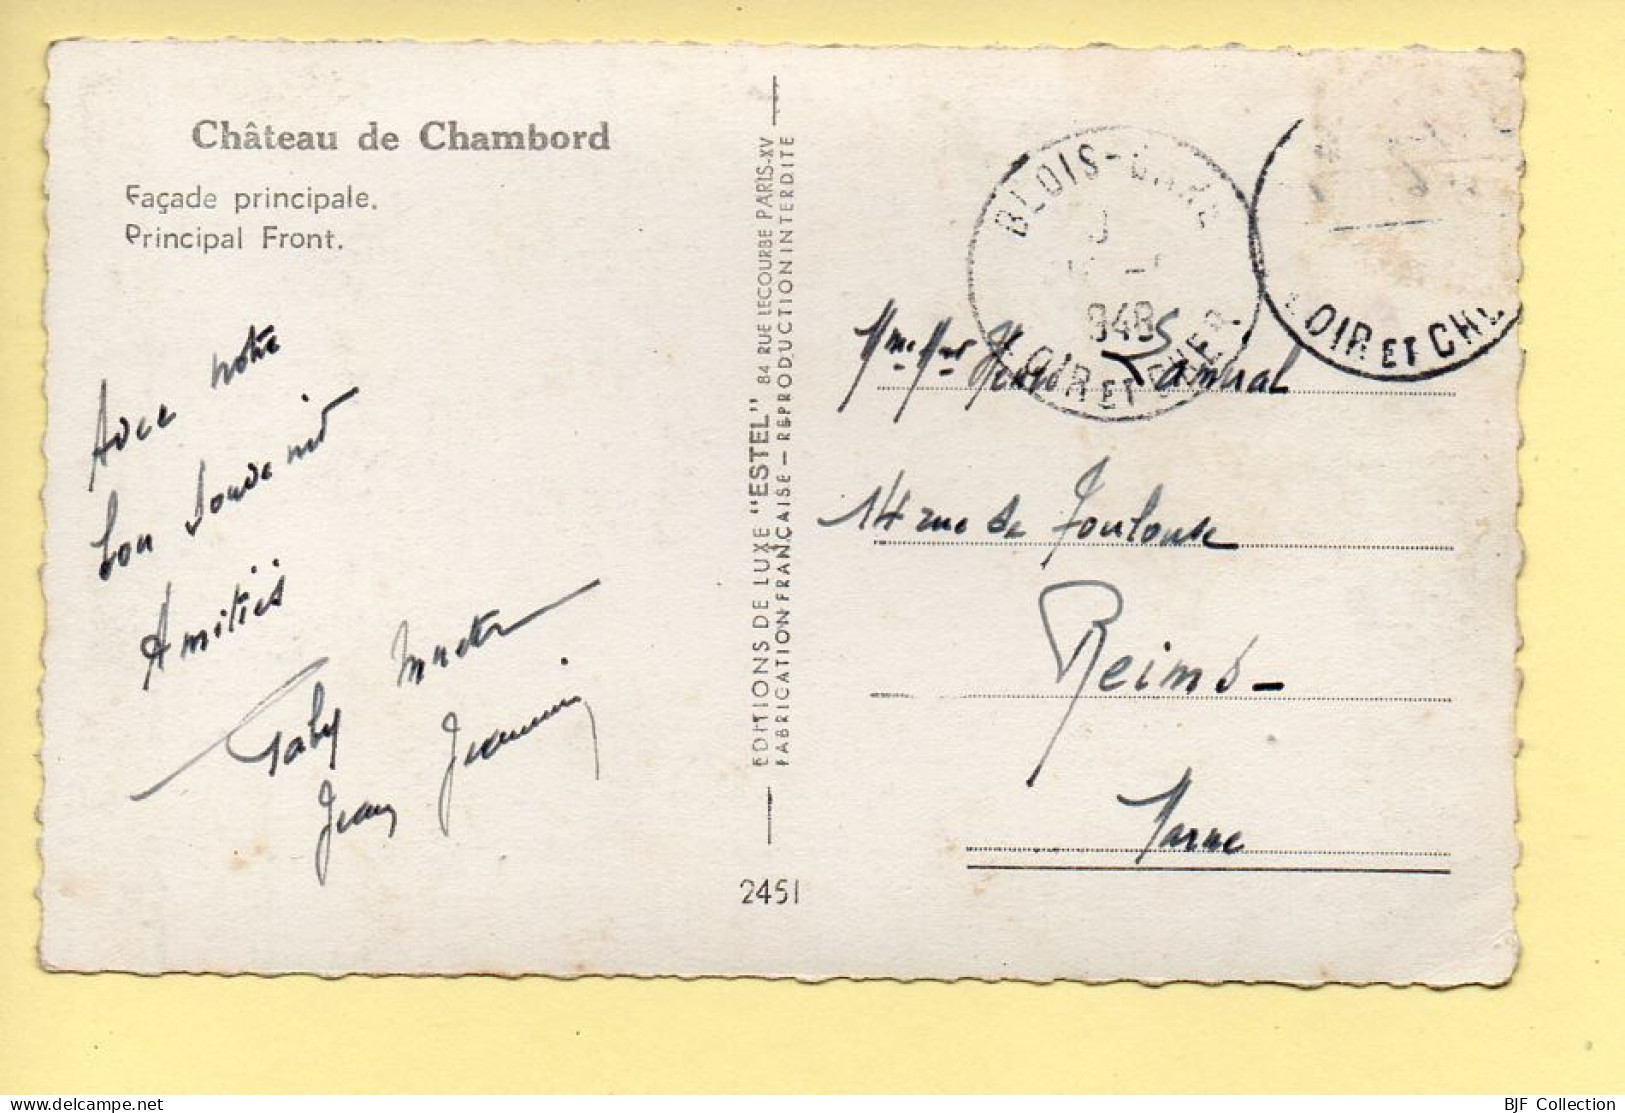 Château de Chambord
Façade principale.
Principal Front.
Avec notre
bon souvenir
Amitiés
Gaby
Jean Jeannine
EDITIONS DE LUXE "ESTEL" 84 RUE LECOURBE PARIS-XV
FABRICATION FRANÇAISE - REPRODUCTION INTERDITE
2451
BLOIS-GARE
1948
LOIR ET CHER
LOIR ET CHER
14 rue de Toulouse
Reims -
Marne
delcampe.net
BJF Collection